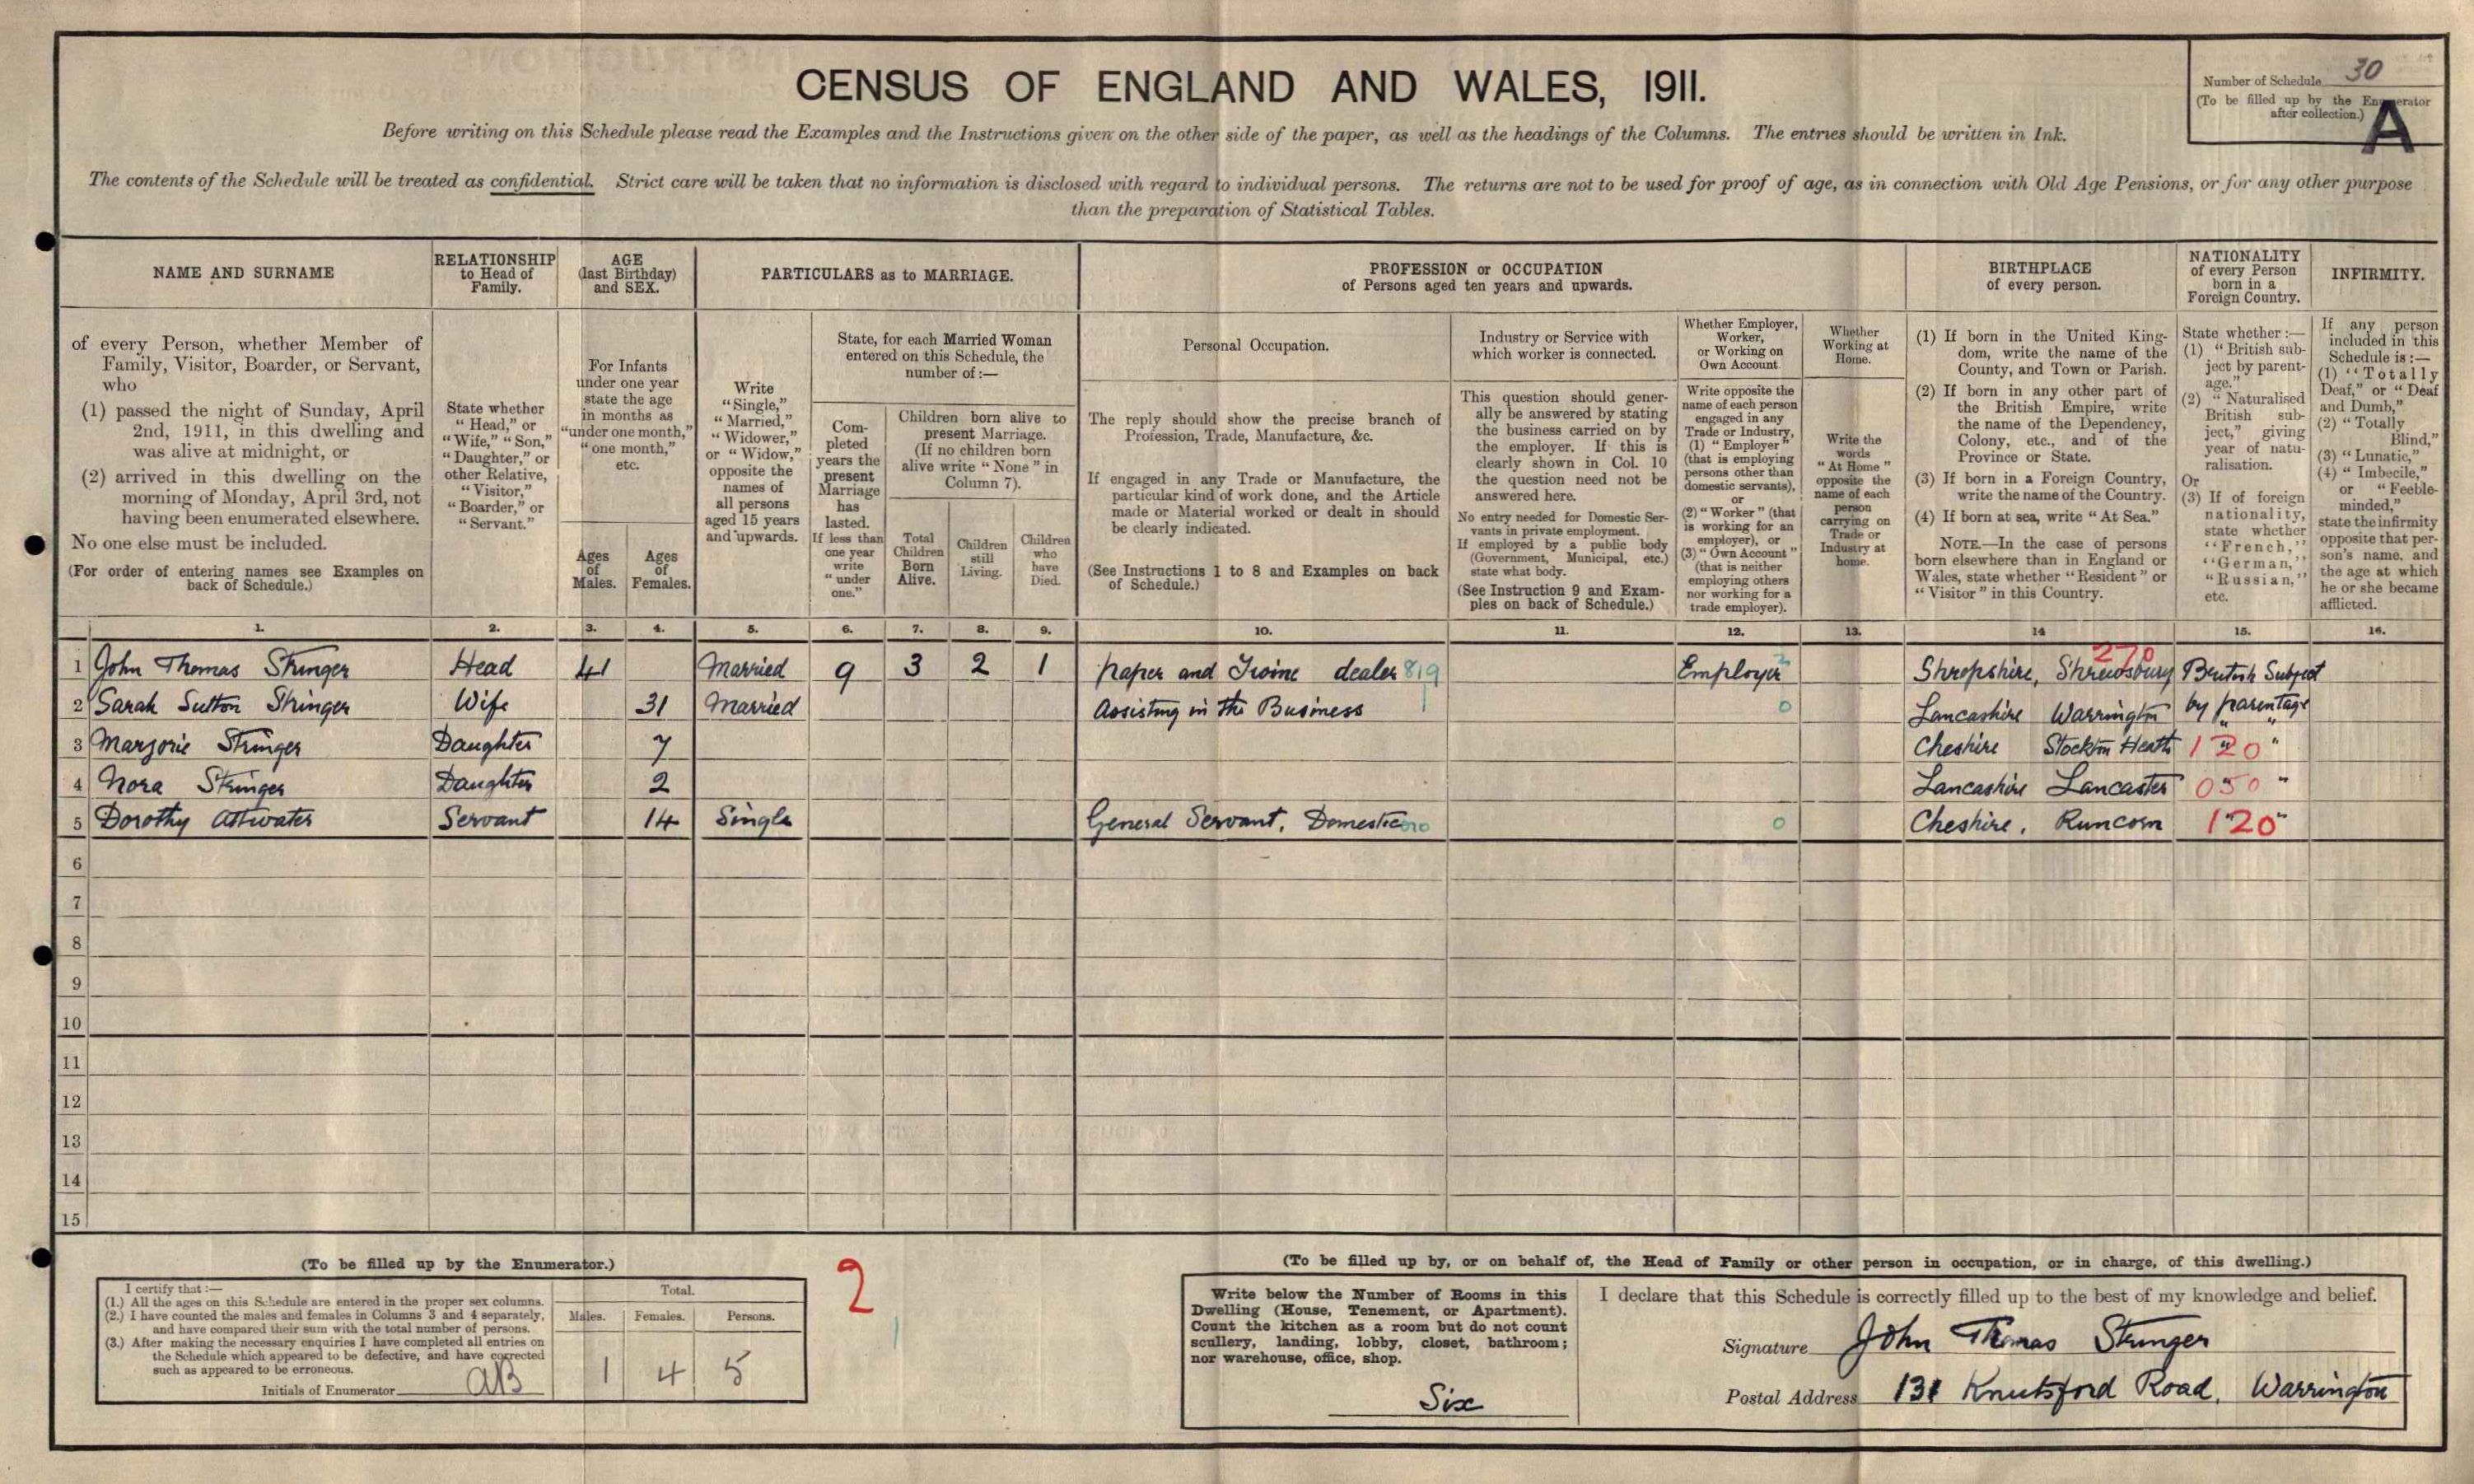 CENSUS OF ENGLAND AND WALES, 1911.
Number of Schedule 30
(To be filled up by the Enumerator after collection.)
A
Before writing on this Schedule please read the Examples and the Instructions given on the other side of the paper, as well as the headings of the Columns. The entries should be written in Ink.
The contents of the Schedule will be treated as confidential. Strict care will be taken that no information is disclosed with regard to individual persons. The returns are not to be used for proof of age, as in connection with Old Age Pensions, or for any other purpose
than the preparation of Statistical Tables.
NAME AND SURNAME
of every Person, whether Member of
Family, Visitor, Boarder, or Servant,
who
(1) passed the night of Sunday, April
2nd, 1911, in this dwelling and
was alive at midnight, or
(2) arrived in this dwelling on the
morning of Monday, April 3rd, not
having been enumerated elsewhere.
No one else must be included.
(For order of entering names see Examples on
back of Schedule.)
RELATIONSHIP
to Head of
Family.
State whether
"Head," or
"Wife," "Son,"
"Daughter," or
other Relative,
"Visitor,"
"Boarder," or
"Servant."
AGE
(last Birthday)
and SEX.
For Infants
under one year
state the age
in months as
"under one month,"
"one month,"
etc.
Ages
of
Males.
Ages
of
Females.
PARTICULARS as to MARRIAGE.
Write
"Single,"
"Married,"
"Widower,"
or "Widow,"
opposite the
names of
all persons
aged 15 years
and upwards.
State, for each Married Woman
entered on this Schedule, the
number of:—
Com-
pleted
years the
present
Marriage
has
lasted.
If less than
one year
write
"under
one."
Children born alive to
present Marriage.
(If no children born
alive write "None" in
Column 7).
Total
Children
Born
Alive.
Children
still
Living.
Children
who
have
Died.
PROFESSION or OCCUPATION
of Persons aged ten years and upwards.
Personal Occupation.
The reply should show the precise branch of
Profession, Trade, Manufacture, &c.
If engaged in any Trade or Manufacture, the
particular kind of work done, and the Article
made or Material worked or dealt in should
be clearly indicated.
(See Instructions 1 to 8 and Examples on back
of Schedule.)
Industry or Service with
which worker is connected.
This question should gener-
ally be answered by stating
the business carried on by
the employer. If this is
clearly shown in Col. 10
the question need not be
answered here.
No entry needed for Domestic Ser-
vants in private employment.
If employed by a public body
(Government, Municipal, etc.)
state what body.
(See Instruction 9 and Exam-
ples on back of Schedule.)
Whether Employer,
Worker,
or Working on
Own Account
Write opposite the
name of each person
engaged in any
Trade or Industry,
(1) "Employer"
(that is employing
persons other than
domestic servants),
or
(2) "Worker" (that
is working for an
employer), or
(3) "Own Account"
(that is neither
employing others
nor working for a
trade employer).
Whether
Working at
Home.
Write the
words
"At Home"
opposite the
name of each
person
carrying on
Trade or
Industry at
home.
BIRTHPLACE
of every person.
(1) If born in the United King-
dom, write the name of the
County, and Town or Parish.
(2) If born in any other part of
the British Empire, write
the name of the Dependency,
Colony, etc., and of the
Province or State.
(3) If born in a Foreign Country,
write the name of the Country.
(4) If born at sea, write "At Sea."
NOTE.—In the case of persons
born elsewhere than in England or
Wales, state whether "Resident" or
"Visitor" in this Country.
NATIONALITY
of every Person
born in a
Foreign Country.
State whether:—
(1) "British sub-
ject by parent-
age."
(2) "Naturalised
British sub-
ject," giving
year of natu-
ralisation.
Or
(3) If of foreign
nationality,
state whether
"French,"
"German,"
"Russian,"
etc.
INFIRMITY.
If any person
included in this
Schedule is:—
(1) "Totally
Deaf," or "Deaf
and Dumb,"
(2) "Totally
Blind,"
(3) "Lunatic,"
(4) "Imbecile,"
or "Feeble-
minded,"
state the infirmity
opposite that per-
son's name, and
the age at which
he or she became
afflicted.
1. 2. 3. 4. 5. 6. 7. 8. 9. 10. 11. 12. 13. 14 15. 16.
270
1 John Thomas Stringer Head 41 Married 9 3 2 1 Paper and Twine dealer 819 Employer 2 Shropshire, Shrewsbury British Subject
2 Sarah Sutton Stringer Wife 31 Married Assisting in the Business 1 0 Lancashire Warrington by parentage
3 Marjorie Stringer Daughter 7 Cheshire Stockton Heath 120 " "
4 Nora Stringer Daughter 2 Lancashire Lancaster 050 "
5 Dorothy Attwater Servant 14 Single General Servant, Domestic 010 0 Cheshire, Runcorn 120 "
6
7
8
9
10
11
12
13
14
15
(To be filled up by the Enumerator.)
I certify that:—
(1.) All the ages on this Schedule are entered in the proper sex columns.
(2.) I have counted the males and females in Columns 3 and 4 separately,
and have compared their sum with the total number of persons.
(3.) After making the necessary enquiries I have completed all entries on
the Schedule which appeared to be defective, and have corrected
such as appeared to be erroneous.
Initials of Enumerator AB
Total.
Males. Females. Persons.
1 4 5
2
(To be filled up by, or on behalf of, the Head of Family or other person in occupation, or in charge, of this dwelling.)
Write below the Number of Rooms in this
Dwelling (House, Tenement, or Apartment).
Count the kitchen as a room but do not count
scullery, landing, lobby, closet, bathroom;
nor warehouse, office, shop.
Six
I declare that this Schedule is correctly filled up to the best of my knowledge and belief.
Signature John Thomas Stringer
Postal Address 131 Knutsford Road, Warrington